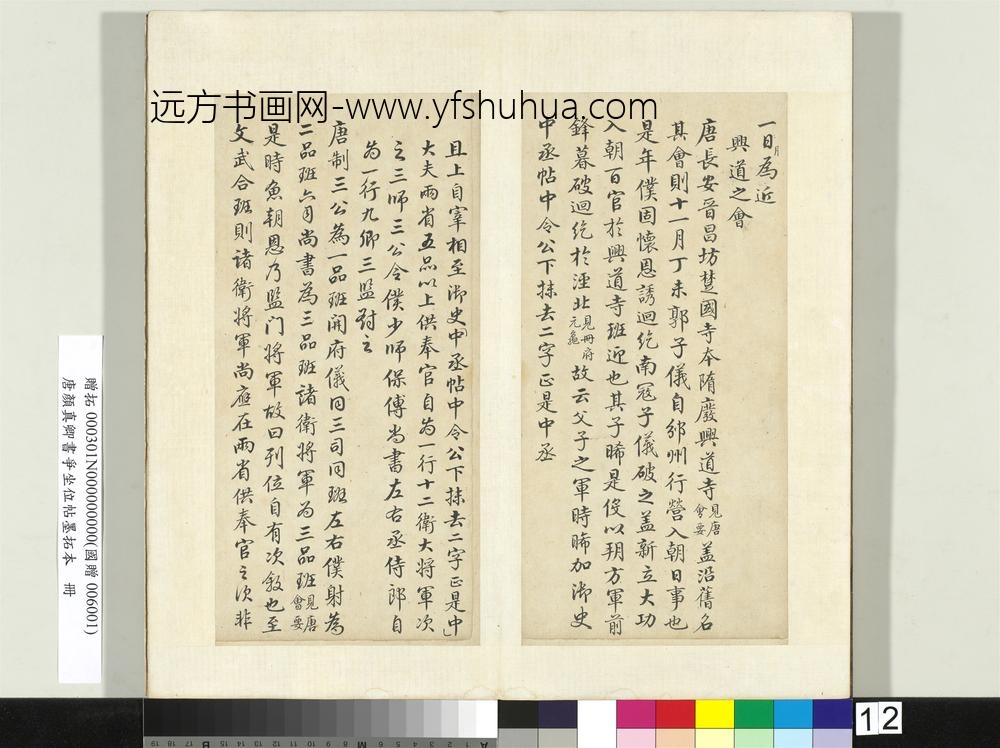 远方书画网-www.yfshuhua.com
一日月為近
興道之會
唐長安晉昌坊楚國寺本隋廢興道寺見唐會要蓋沿舊名
其會則十一月丁未郭子儀自邠州行營入朝日事也
是年僕固懷恩誘迴紇南寇子儀破之蓋新立大功
入朝百官於興道寺班迎也其子晞是役以朔方軍前
鋒暮破迴紇於涇北見冊府元龜故云父子之軍時晞加御史
中丞帖中令公下抹去二字正是中丞
且上自宰相至御史中丞帖中令公下抹去二字正是中
大夫兩省五品以上供奉官自為一行十二衛大將軍次
之三師三公令僕少師保傅尚書左右丞侍郎自
為一行九卿三監對之
唐制三公為一品班開府儀同三司同班左右僕射為
二品班六曹尚書為三品班諸衛將軍為三品班見唐會要
是時魚朝恩乃監门將軍故曰列位自有次敘也至
文武合班則諸衛將軍尚應在兩省供奉官之次非
贈拓 000301N000000000(國贈 006001)
唐顏真卿書爭坐位帖墨拓本 冊
12